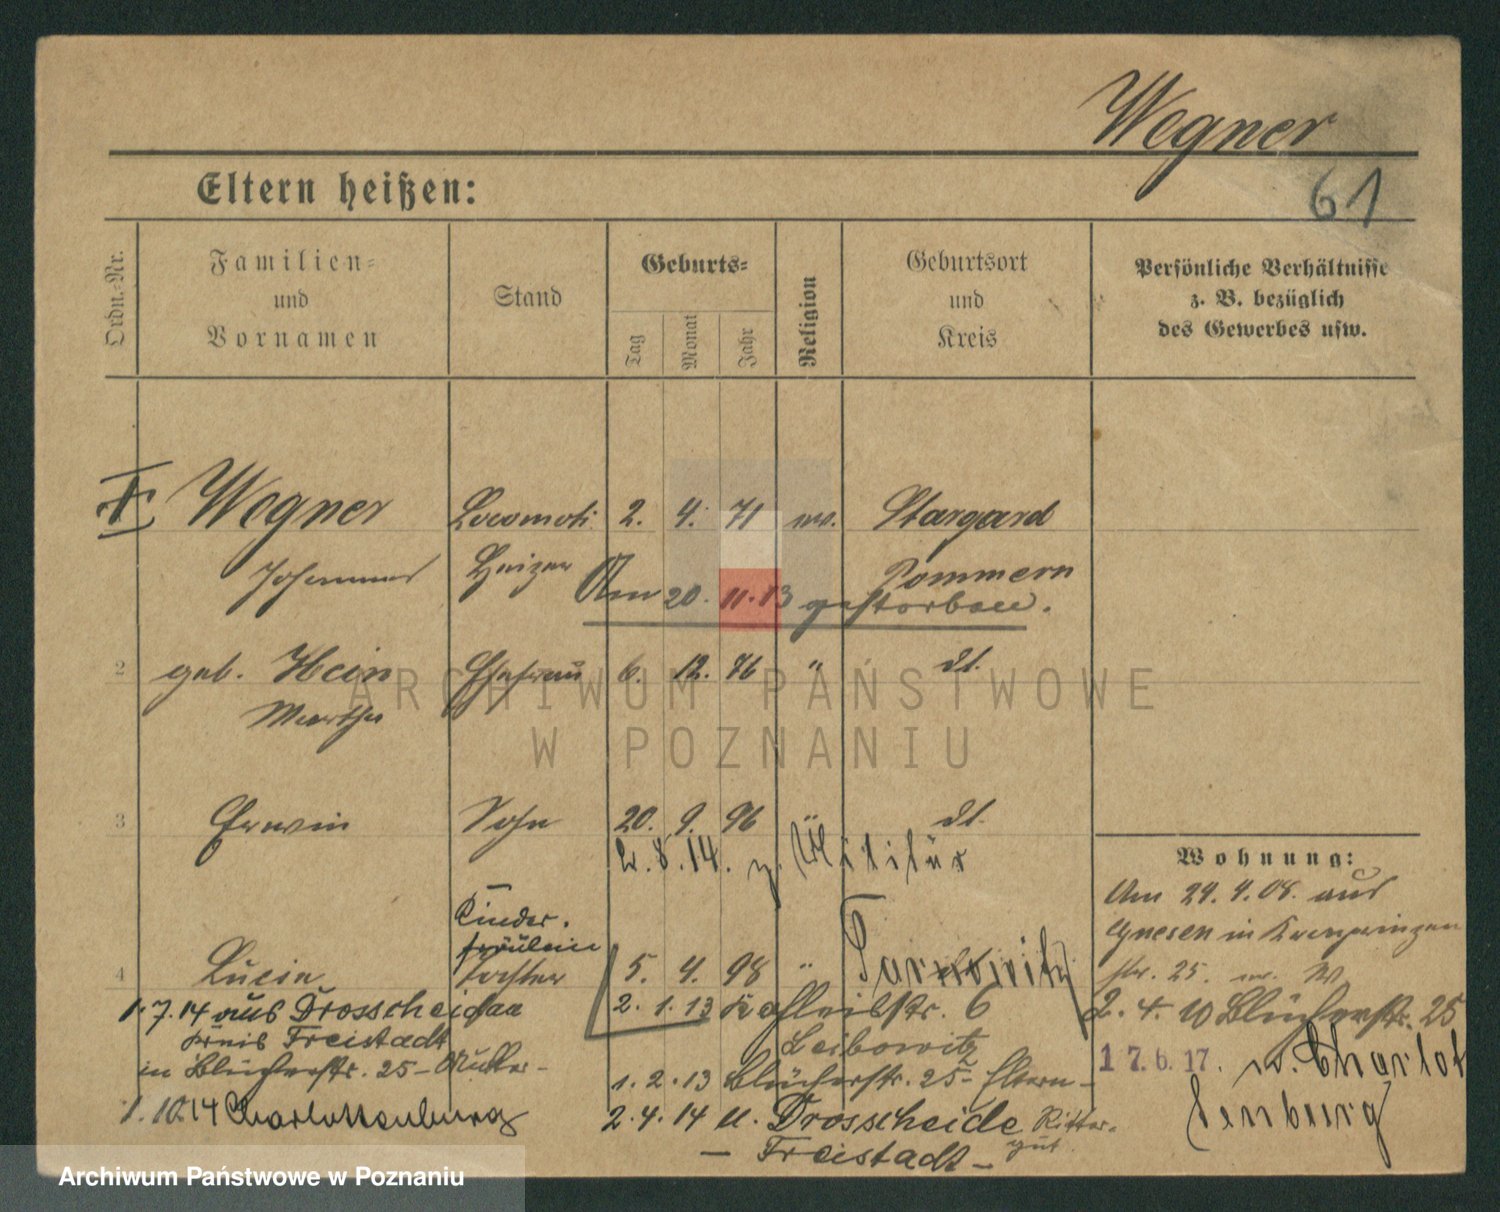 Wegner
61
Eltern heißen:
Ordn.-Nr.
Familien-
und
Vornamen
Stand
Geburts-
Tag
Monat
Jahr
Religion
Geburtsort
und
Kreis
Persönliche Verhältnisse
z. B. bezüglich
des Gewerbes usw.
Wegner Locomoti 2. 4. 71 ev. Stargard
Johannes Heizer Pommern
Am 20. 11. 13 gestorben.
2 geb. Hein Ehefrau 6. 12. 76 " dt.
Martha
3 Erwin Sohn 20. 9. 96 " dt.
2. 8. 14. z. Militär
Wohnung:
Am 29. 4. 08. aus
Gnesen in Kronprinzen
str. 25. W
Kinder-
fräulein
4 Tochter 5. 4. 98 " Tarnowitz
1. 7. 14 aus Drosscheidau
Kreis Freistadt
in Blücherstr. 25 - Mutter -
1. 10. 14 Charlottenburg
2. 1. 13 6
Leibowitz
1. 2. 13 Blücherstr. 25 - Eltern -
2. 4. 14 n. Drosscheide Ritter-
gut
- Freistadt -
2. 4. 10 Blücherstr. 25
17.6.17. n. Charlot
tenburg
ARCHIWUM PAŃSTWOWE
W POZNANIU
Archiwum Państwowe w Poznaniu